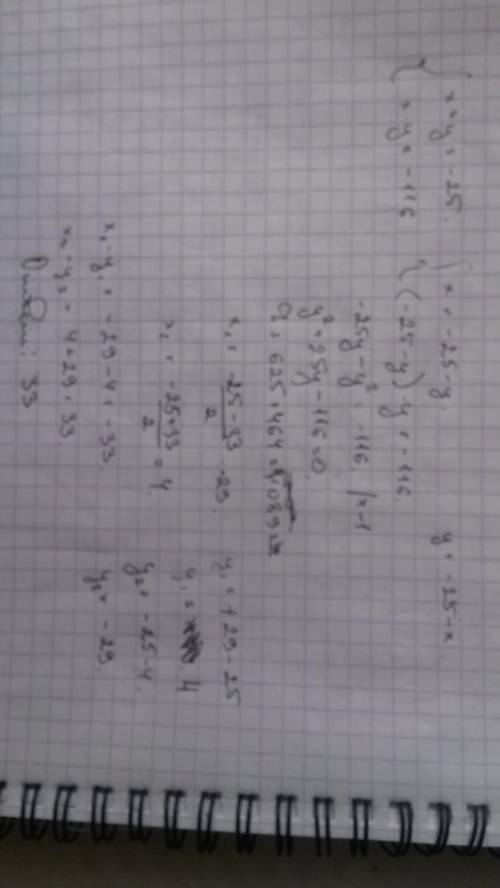 { x + y = -25. { x = -25 - y. y = -25 - x
{ x · y = -116 { (-25 - y) · y = -116.
-25y - y² = -116 / x -1
y² + 25y - 116 = 0
D = 625 + 464 = 1089
x₁ = -25 - 33 / 2 = -29 y₁ = +29 - 25
y₁ = 4
x₂ = -25 + 33 / 2 = 4 y₂ = -25 - 4.
y₂ = -29.
x₁ - y₁ = -29 - 4 = -33
x₂ - y₂ = 4 + 29 = 33.
33